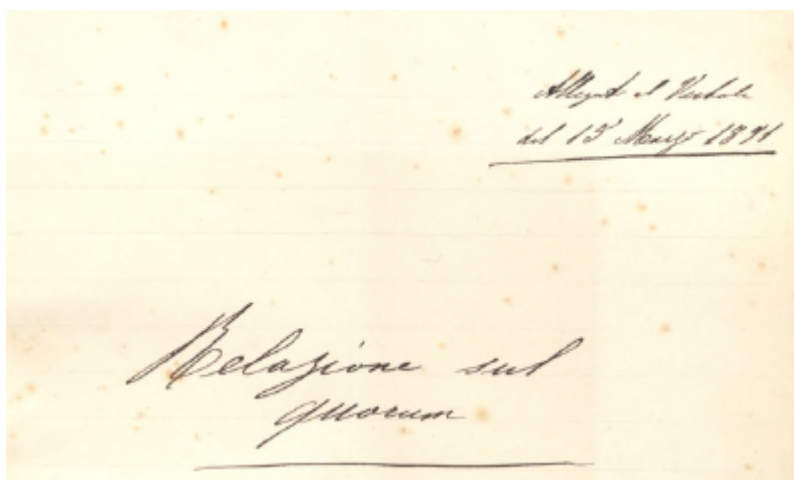 Allegato al Verbale
del 15 Marzo 1891
Relazione sul
quorum